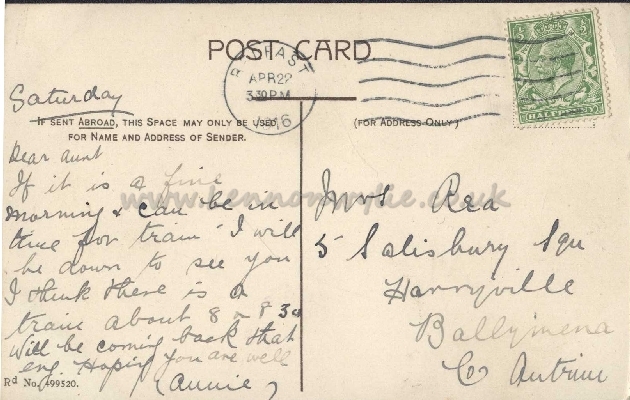 POST CARD
BELFAST
APR 22
3 30 PM
1916
HALFPENNY
Saturday
IF SENT ABROAD, THIS SPACE MAY ONLY BE USED
FOR NAME AND ADDRESS OF SENDER.
(FOR ADDRESS ONLY)
Dear Aunt
If it is a fine
morning & can be in
time for train I will
be down to see you
I think there is a
train about 8 or 8 30
Will be coming back that
eng. Hoping you are well
(Annie)
Rd No. 499520.
Mrs Rea
5 Salisbury Squ
Harryville
Ballymena
Co Antrim